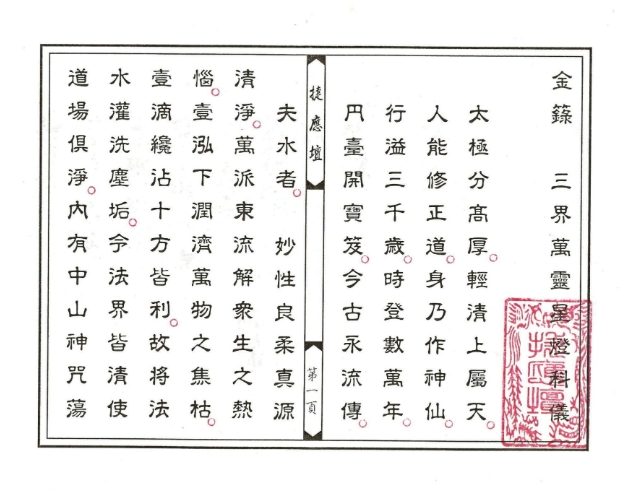 金籙　三界萬靈星燈科儀
太極分高厚。輕清上屬天。
人能修正道。身乃作神仙。
行溢三千歲。時登數萬年。
円臺開寶笈。今古永流傳。
捷應壇
第一頁
夫水者。　妙性良柔真源
清淨。萬派東流解眾生之熱
惱。壹泓下潤濟萬物之焦枯。
壹滴纔沾十方皆利。故將法
水灌洗塵垢。令法界皆清使
道場俱淨。內有中山神咒蕩